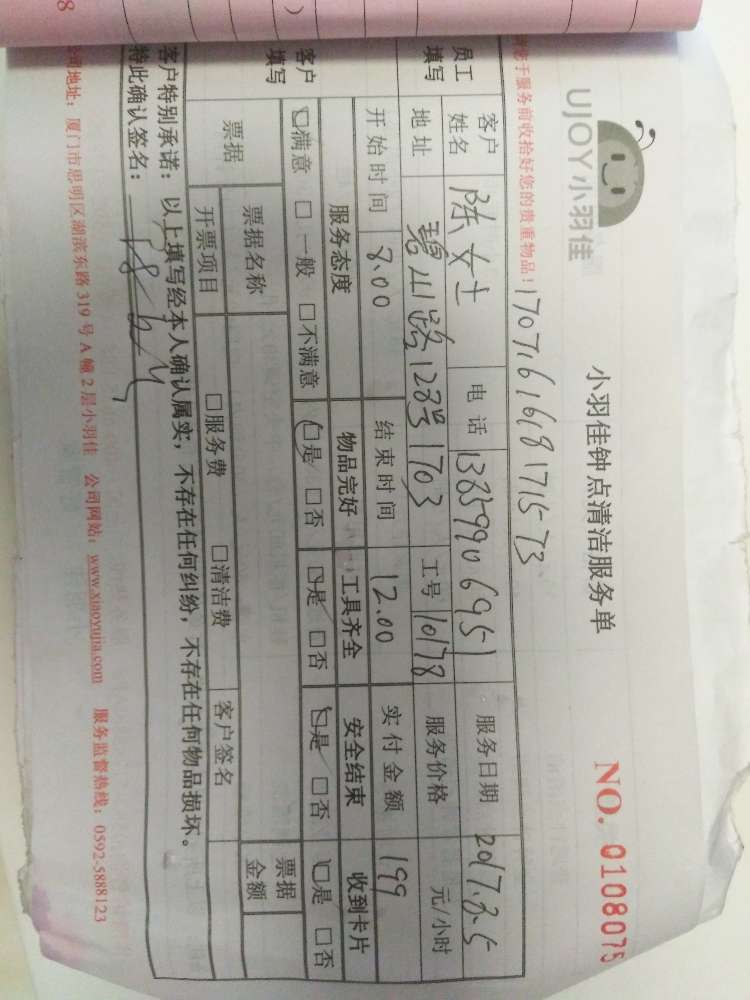 UJOY小羽佳
小羽佳钟点清洁服务单
NO. 0108075
请您于服务前收拾好您的贵重物品！
1707161618171573
员工填写
客户姓名 陈女士 电话 13859906951 服务日期 2017.3.5
地址 碧山路128号1703 工号 10178 服务价格 元/小时
开始时间 8.00 结束时间 12.00 实付金额 199
客户填写
服务态度 物品完好 工具齐全 安全结束 收到卡片
☑满意 □一般 □不满意 ☑是 □否 ☑是 □否 ☑是 □否 ☑是 □否
票据 票据名称 票据金额
开票项目 □服务费 □清洁费 客户签名
客户特别承诺：以上填写经本人确认属实，不存在任何纠纷，不存在任何物品损坏。
特此确认签名：
公司地址：厦门市思明区湖滨东路319号A幢2层小羽佳 公司网站：www.xiaoyujia.com 服务监督热线：0592-5888123